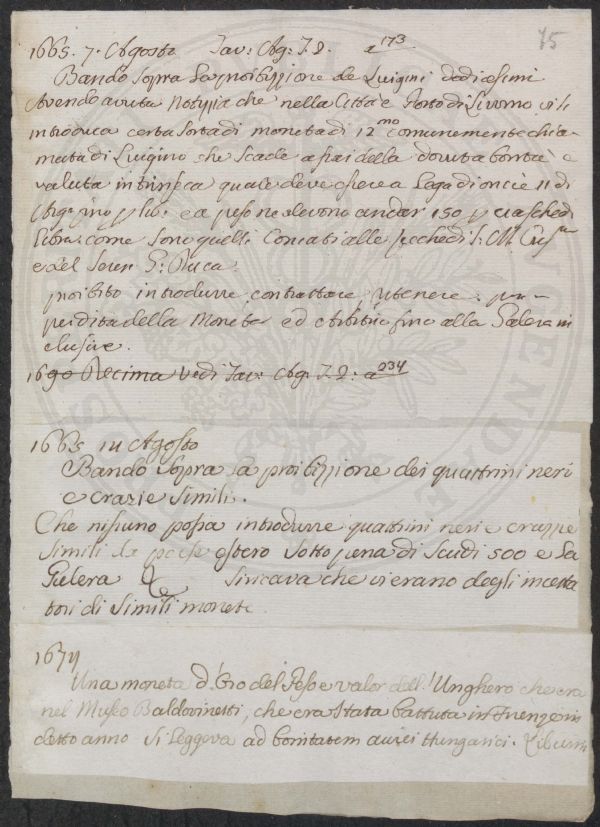 75
1665. 7. Agosto Tav: Ag: T. 2. a 173
Bando Sopra La proibizzione de Luigini dodicesimi
Avendo avuta Notizia che nella Città e Porto di Livorno vi si
introduca certa Sorta di moneta di 12mo comunemente chia-
mata di Luigino che Scade assai della dovuta bontà e
valuta intrinseca quale deve essere a Lega di oncie 11 di
Arg. fino p lib: e a peso ne devono andar 150 p ciaschedª
Libra come Sono quelli Coniati alle Zecche di S. M. Crisma
e del Seren G: Duca.
proibito introdurre contrattare, ritenere
perdita della Moneta ed Arbitrio fino alla Galera in
clusive.
1690 Decima Vedi Tav: Ag: T. 2: a 234
1665 14 Agosto
Bando Sopra La proibizzione dei quattrini neri
e crazie Simili.
Che nissuno possa introdurre quattrini neri e crazze
Simili da paese estero Sotto pena di Scudi 500 e La
Galera & Si ricava che vi erano degli incetta
tori di Simili monete
1674
Una moneta d'Oro del Peso e valor dell'Unghero che era
nel Museo Baldovinetti, che era Stata battuta in Firenze in
detto anno Si Leggeva ad bonitatem aurei Hungarici.